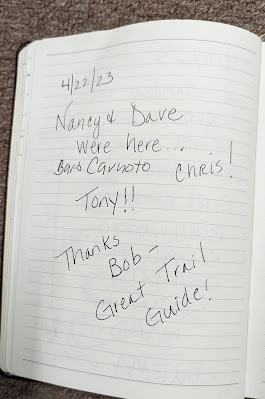 4/22/23
Nancy & Dave
were here...
Barb Carnoto Chris!
Tony!!
Thanks
Bob -
Great Trail
Guide!